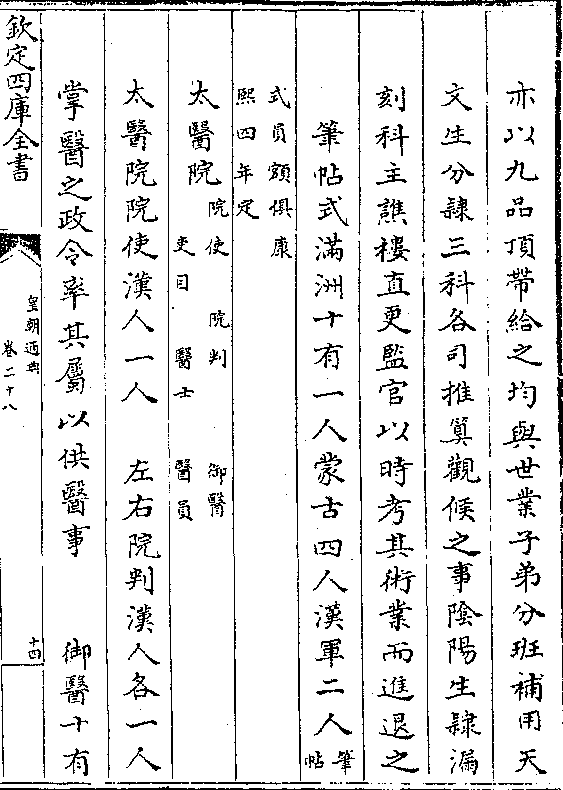 亦以九品頂帶給之均與世業子弟分班補用天
文生分隸三科各司推算觀候之事陰陽生隸漏
刻科主譙樓直更監官以時考其術業而進退之
筆帖式滿洲十有一人蒙古四人漢軍二人筆帖
式員額俱康
熙四年定
太醫院院使 院判 御醫
吏目 醫士 醫員
太醫院院使漢人一人 左右院判漢人各一人
掌醫之政令率其屬以供醫事 御醫十有
欽定四庫全書
皇朝通典
卷二十八
十四